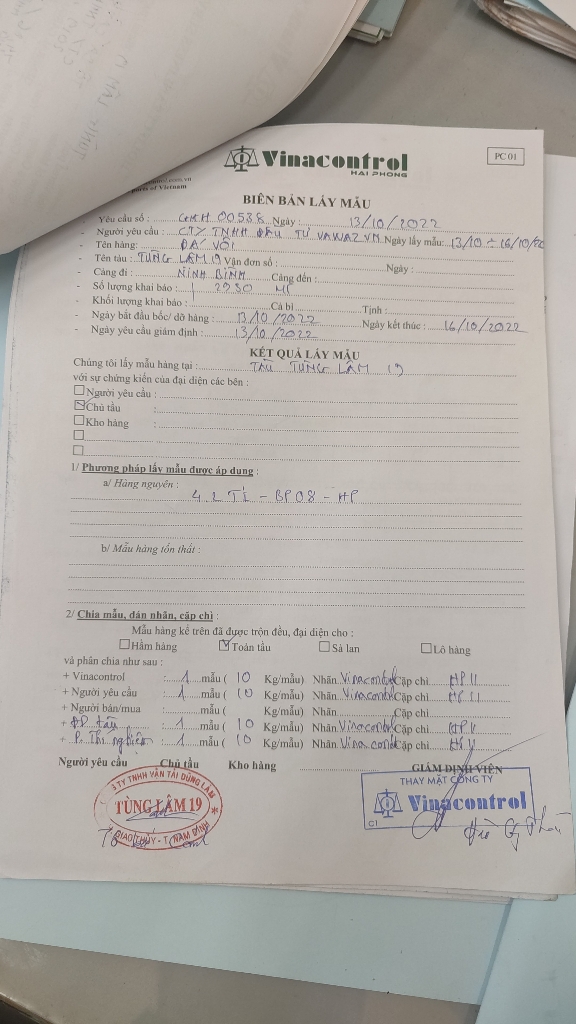 Vinacontrol
HAI PHONG
PC 01
BIÊN BẢN LẤY MẪU
- Yêu cầu số : 00538 Ngày : 13/10/2022
- Người yêu cầu : CTY TNHH ĐẦU TƯ VAWAZ VN Ngày lấy mẫu: 13/10 ÷ 16/10/
- Tên hàng: ĐÁ VÔI
- Tên tàu : TÙNG LÂM 19 Vận đơn số : Ngày :
- Cảng đi : NINH BÌNH Cảng đến :
- Số lượng khai báo : 2230 MT
- Khối lượng khai báo : Cả bì Tịnh :
- Ngày bắt đầu bốc/ dỡ hàng : 13/10/2022 Ngày kết thúc : 16/10/2022
- Ngày yêu cầu giám định : 13/10/2022
KẾT QUẢ LẤY MẪU
Chúng tôi lấy mẫu hàng tại : TÀU TÙNG LÂM 19
với sự chứng kiến của đại diện các bên :
Người yêu cầu :
Chủ tầu :
Kho hàng :
1/ Phương pháp lấy mẫu được áp dụng :
a/ Hàng nguyên :
- BP08 - HP
b/ Mẫu hàng tổn thất :
2/ Chia mẫu, dán nhãn, cặp chì :
Mẫu hàng kể trên đã được trộn đều, đại diện cho :
Hầm hàng Toàn tầu Sà lan Lô hàng
và phân chia như sau :
+ Vinacontrol : 1 mẫu ( 10 Kg/mẫu) Nhãn Vinacontrol Cặp chì
+ Người yêu cầu : 1 mẫu ( 10 Kg/mẫu) Nhãn Vinacontrol Cặp chì
+ Người bán/mua : mẫu ( Kg/mẫu) Nhãn Cặp chì
+ tầu : 1 mẫu ( 10 Kg/mẫu) Nhãn Vinacontrol Cặp chì
+ P. Thí nghiệm : 1 mẫu ( 10 Kg/mẫu) Nhãn Vinacontrol Cặp chì
Người yêu cầu Chủ tầu Kho hàng GIÁM ĐỊNH VIÊN
TNHH VẬN TẢI DŨNG LÂM
TÙNG LÂM 19
GIAO THỦY - T. NAM ĐỊNH
THAY MẶT CÔNG TY
Vinacontrol